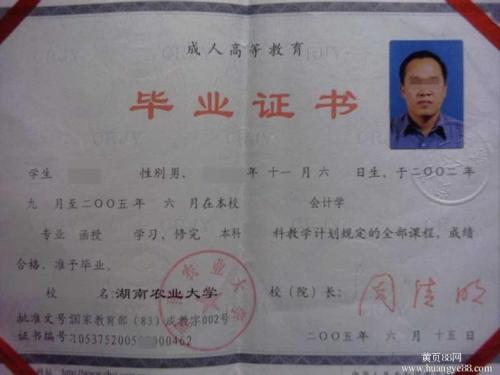 成人高等教育
毕业证书
学生 性别男, 年 十一 月 六 日生,于二〇〇二年
九 月至二〇〇五年 六 月在本校 会计学
专业 函授 学习,修完 本科 科教学计划规定的全部课程,成绩
合格,准予毕业。
校 名:湖南农业大学 校(院)长:
批准文号:国家教育部(83)成教字002号
证书编号:1053752005 000462 二〇〇五年 六 月 十五 日
黄页88网
www.huangye88.com